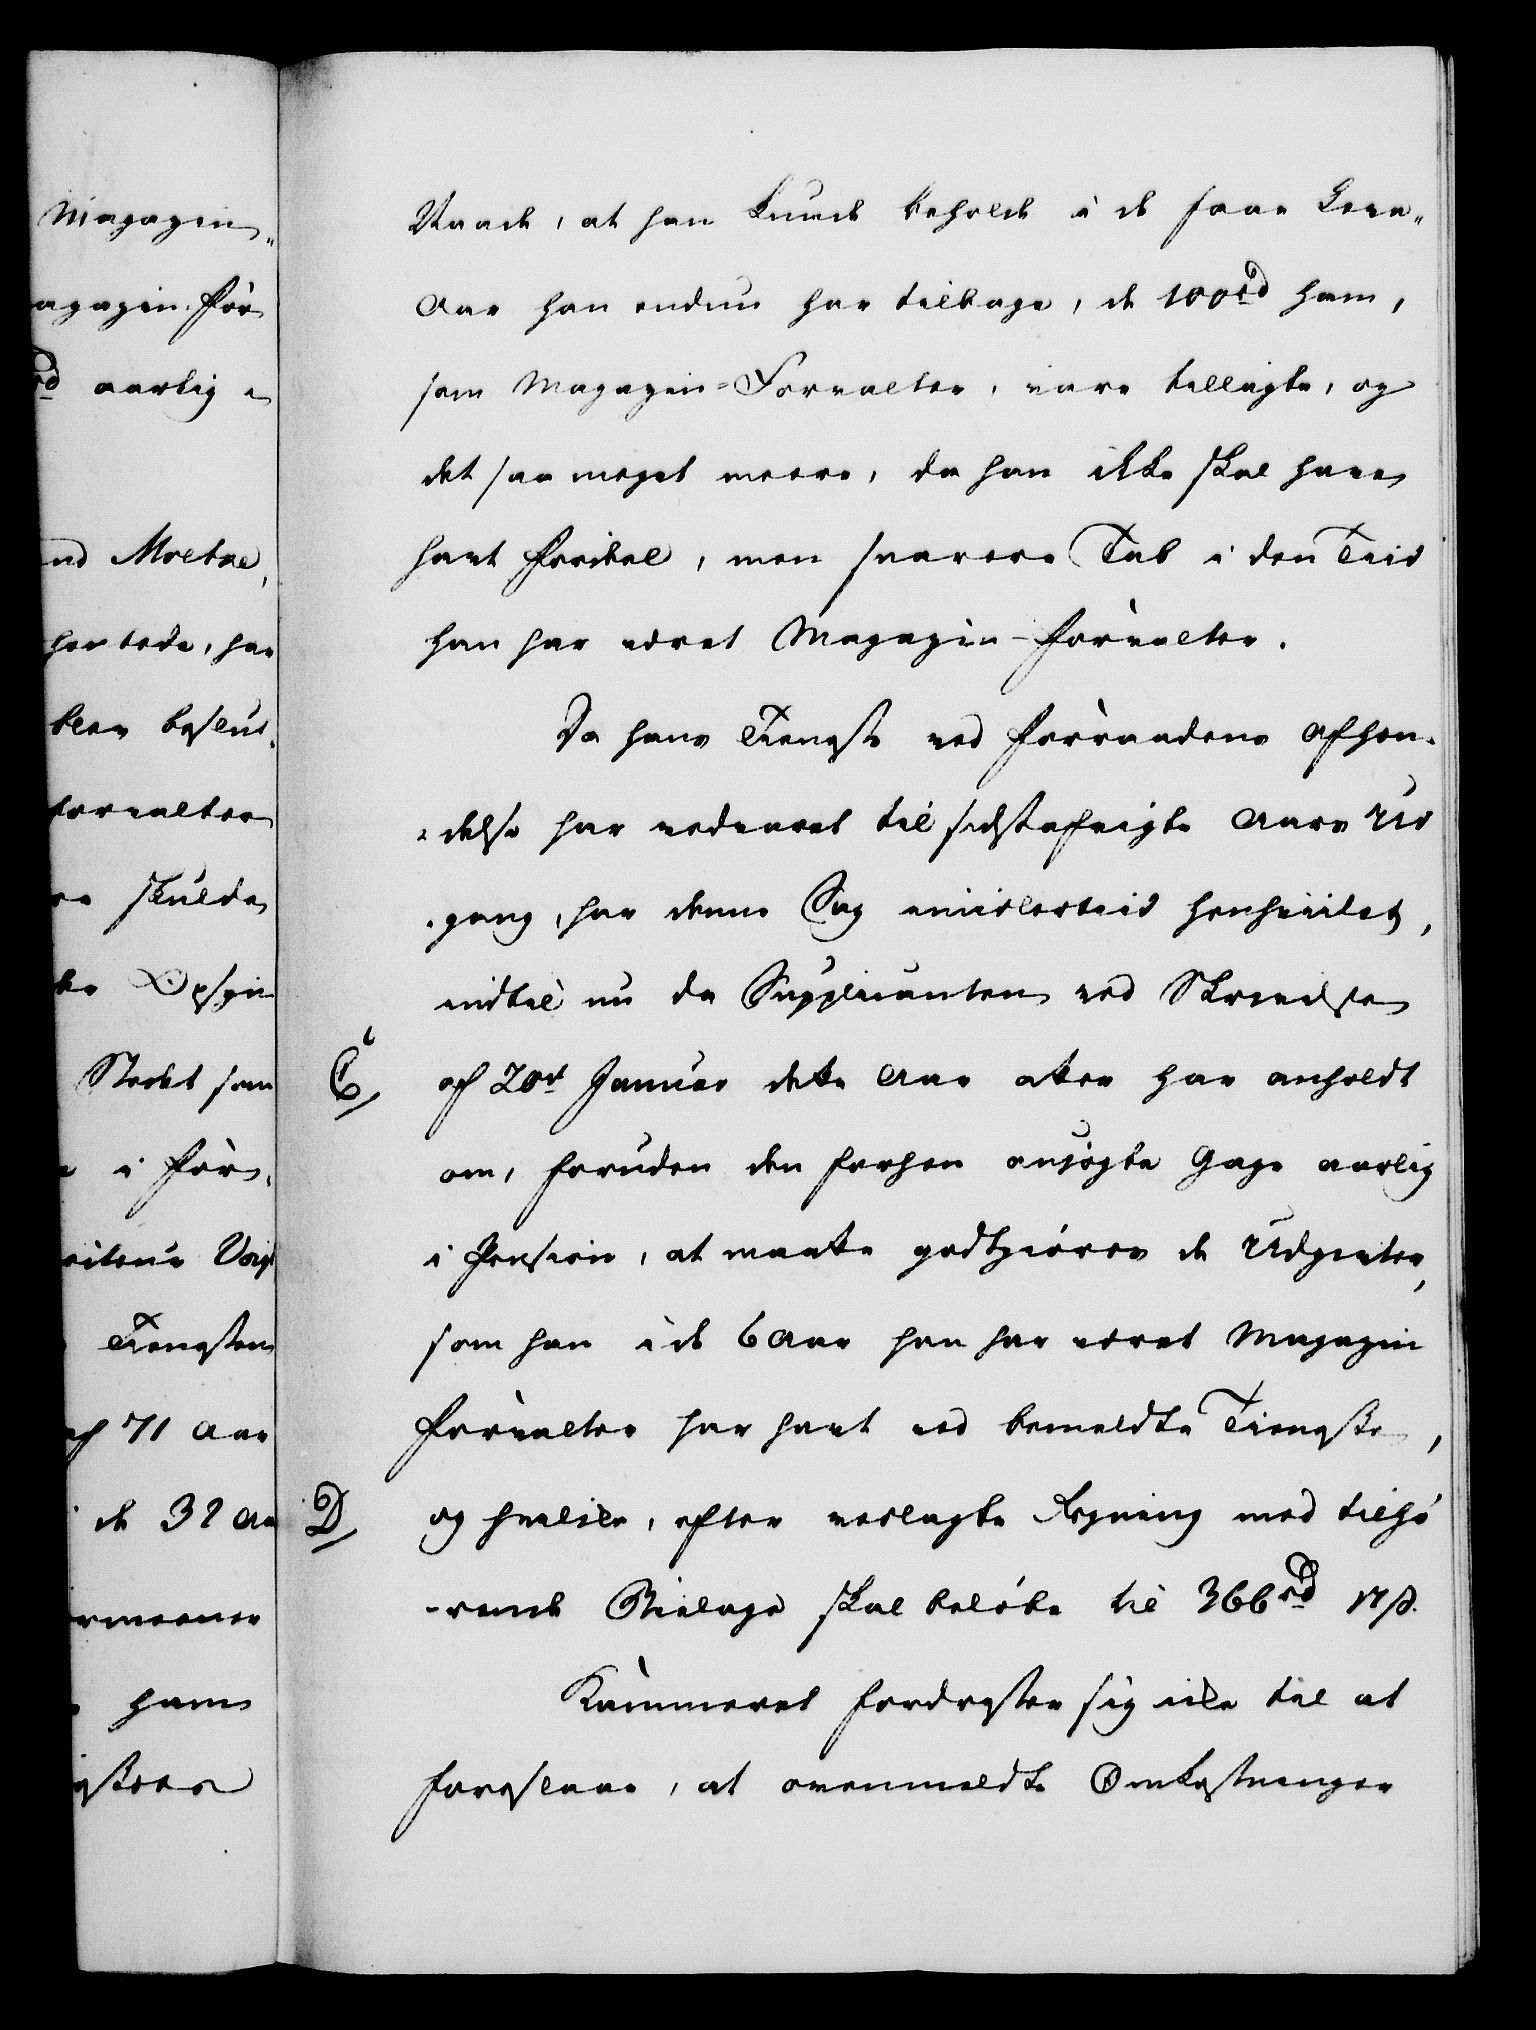 Magazin„
agazin-For
rd aarlig
nd Moltke,
hertede, har
blev beslut„
forvalter
skulde
Opsyn
Stædet som
i For„
Tienesten
af 71 Aar
de 32 Aar
ham
Naade, at han kunde beholde i de faae Leve„
Aar han endnu har tilbage, de 100 rd ham,
som Magazin-Forvalter, vare tillagte, og
det saa meget meere, da han ikke skal have
havt Fordeel, men snarere Tab i den Tiid
han har været Magazin-Forvalter.
Da hans Tieneste ved Forraadens Afhæn„
„delse har vedvaret til sidstafvigte Aars Ud
„gang, har denne Sag imidlertiid henhvilet,
indtil nu da Supplicanten ved Skrivelse
C, af 20de Januar dette Aar atter har anholdt
om, foruden den forhen ansøgte Gage aarlig
i Pension, at maatte godtgiøres de Udgivter,
som han i de 6 Aar han har været Magazin
Forvalter har havt ved bemeldte Tieneste,
D, og hvilke, efter vedlagte Regning med tilhø
„rende Bielage skal beløbe til 366 rd 17 ß.
Kammeret fordrister sig ikke til at
foreslaae, at ovenmeldte Omkostninger